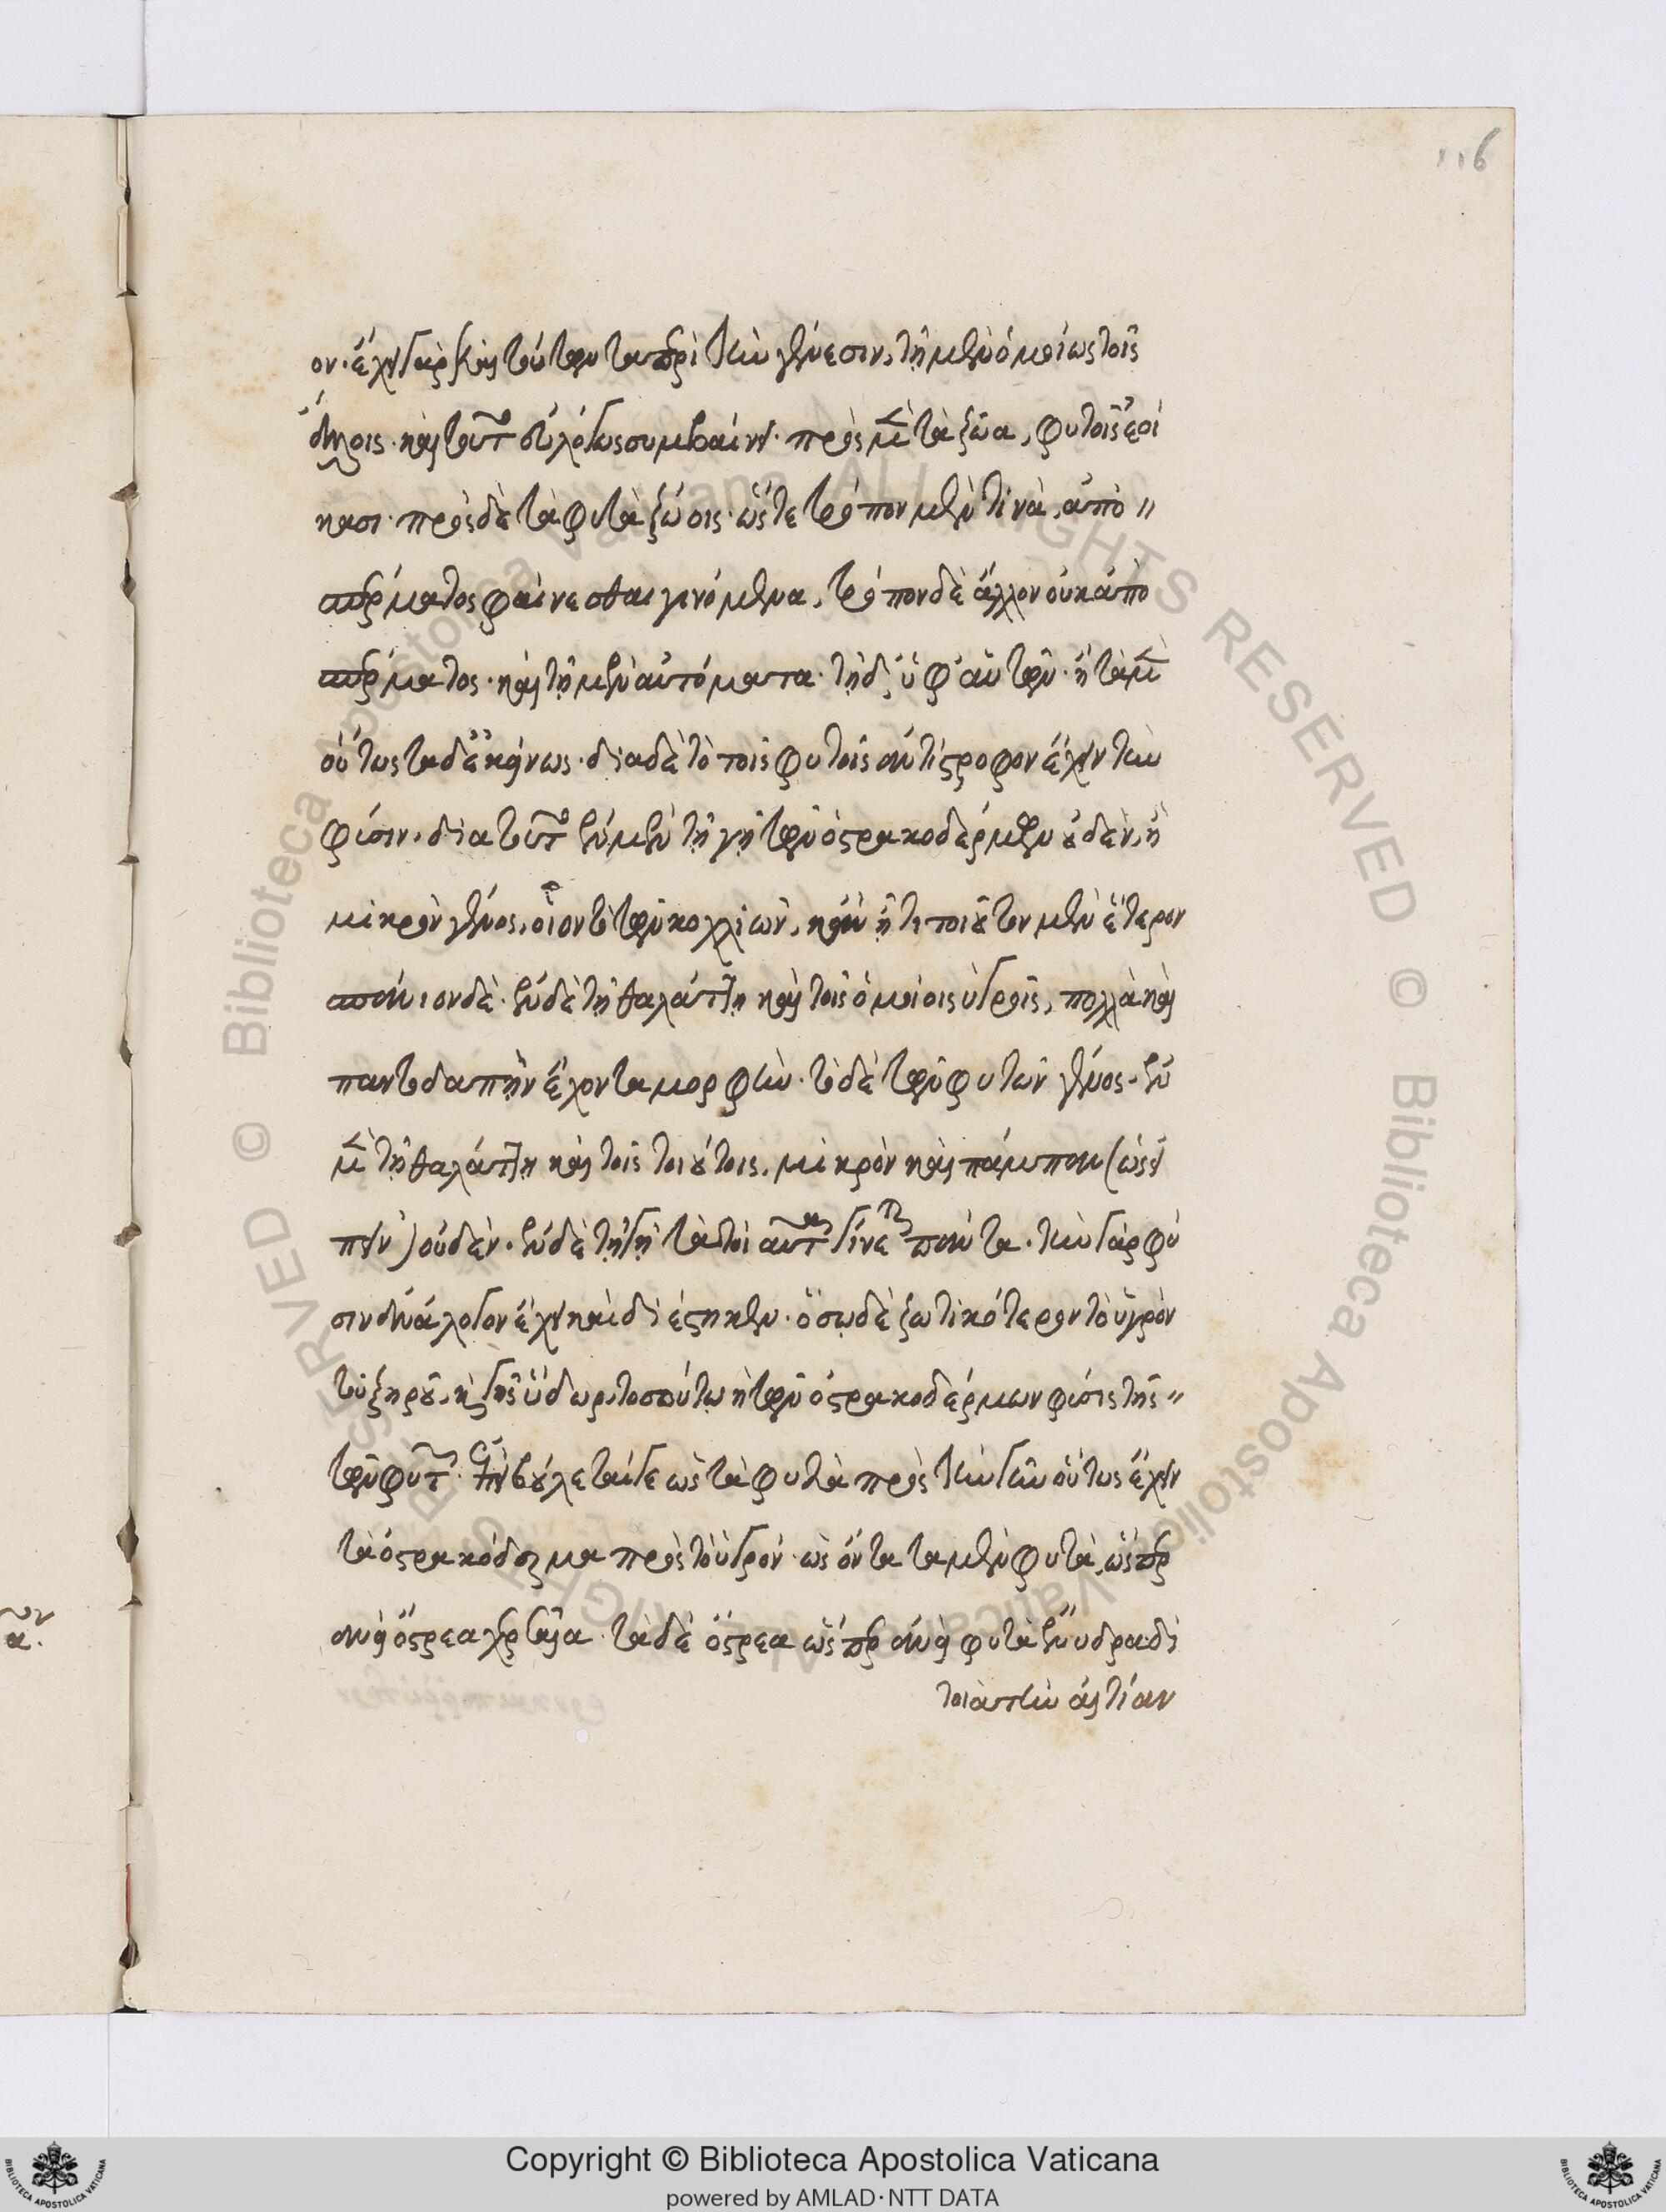 116
ον· ἔχει γὰρ καὶ τούτων τὰ περὶ τὴν γένεσιν, τῇ μὲν ὁμοίως τοῖς
ἄλλοις· καὶ τοῦτ εὐλόγως συμβαίνει· πρὸς μὲν τὰ ζῷα, φυτοῖς ἐοί
κασι· πρὸς δὲ τὰ φυτὰ ζώοις· ὥστε τρόπον μὲν τινὰ, ἀπὸ
σπέρματος φαίνεσθαι γινόμενα, τρόπον δὲ ἄλλον οὐκ ἀπὸ
σπέρματος· καὶ τῇ μὲν αὐτόματα· τῇ δὲ ὑφ' αὑτῶν· ἢ τὰ μὲν
οὕτως τὰ δ' ἐκείνως· διὰ δὲ τὸ τοῖς φυτοῖς ἀντίστροφον ἔχειν τὴν
φύσιν, διὰ τοῦτ ἐν μὲν τῇ γῇ τῶν ὀστρακοδέρμων οὐδὲν, ἢ
μικρὸν γένος, οἷον τὸ τῶν κοχλιῶν, κἂν ᾖ τι τοιοῦτον μὲν ἕτερον
σπάνιον δὲ· ἐν δὲ τῇ θαλάττῃ καὶ τοῖς ὁμοίοις ὑγροῖς, πολλὰ καὶ
παντοδαπὴν ἔχοντα μορφὴν· τὸ δὲ τῶν φυτῶν γένος· ἐν
μὲν τῇ θαλάττῃ καὶ τοῖς τοιούτοις, μικρὸν καὶ πάμπαν (ὡς εἰ
πεῖν) οὐδὲν· ἐν δὲ τῇ γῇ τὰ τοιαῦτα γίνεται πάντα· τὴν γὰρ φύ
σιν ἀνάλογον ἔχει καὶ διέστηκεν· ὅσῳ δὲ ζωτικότερον τὸ ὑγρὸν
τοῦ ξηροῦ, καὶ γῆς ὕδωρ, τοσούτῳ ἡ τῶν ὀστρακοδέρμων φύσις τῆς
τῶν φυτῶν· ἐπεὶ βούλεταί γε ὡς τὰ φυτὰ πρὸς τὴν γῆν οὕτως ἔχειν
τὰ ὀστρακόδερμα πρὸς τὸ ὑγρόν· ὡς ὄντα τὰ μὲν φυτὰ, ὥσπερ
ἀνεὶ ὄστρεα χερσαῖα· τὰ δὲ ὄστρεα ὥσπερ ἀνεὶ φυτὰ ἔνυδρα· διὰ
τοιαύτην αἰτίαν
Copyright © Biblioteca Apostolica Vaticana
powered by AMLAD·NTT DATA